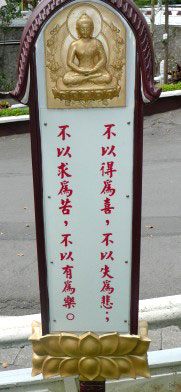 不以得為喜，不以失為悲；
不以求為苦，不以有為樂。